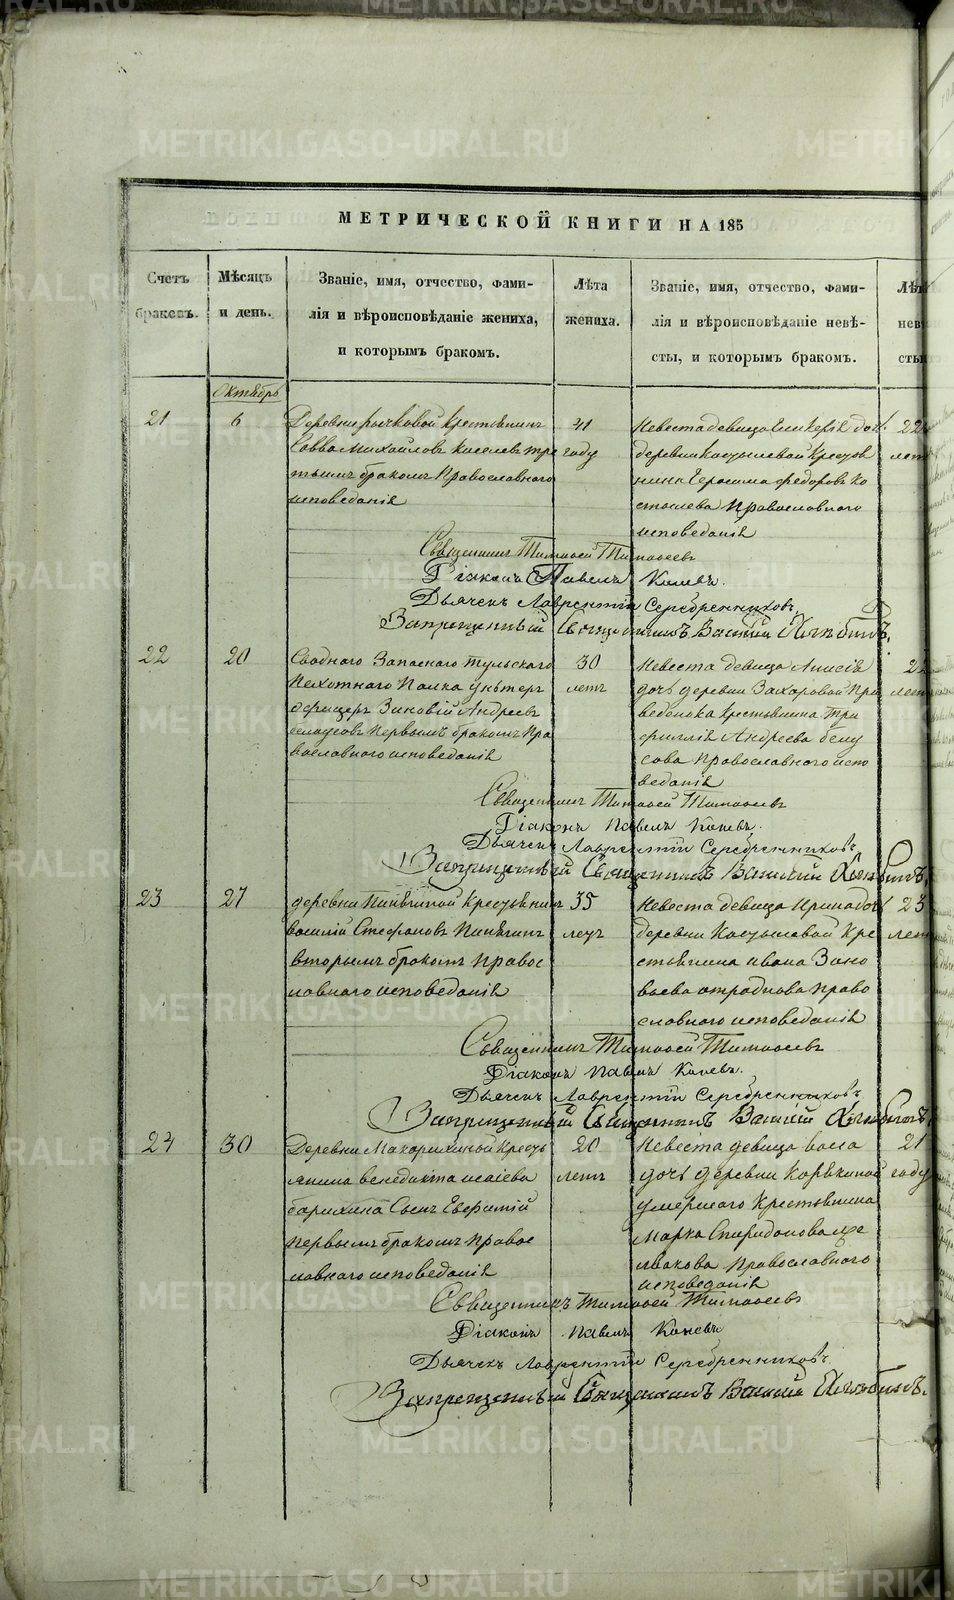 METRIKI.GASO-URAL.RU
МЕТРИЧЕСКОЙ КНИГИ НА 185
Счетъ браковъ.
Мѣсяцъ и день.
Званіе, имя, отчество, фами-
лія и вѣроисповѣданіе жениха,
и которымъ бракомъ.
Лѣта жениха.
Званіе, имя, отчество, фами-
лія и вѣроисповѣданіе невѣ-
сты, и которымъ бракомъ.
Лѣт
Октябрь
21
6
Деревни рычковой Крестьянинъ
Савва Михайловъ Киселевъ тре
тьимъ бракомъ Православнаго
исповеданія
41
году
Невеста девица дочь
деревни Костылевой Крестья
нина Герасима Федорова Ко
стылева Православного
исповеданія
22
лет
Священникъ Тимофей Тимофеевъ
Діаконъ Павелъ Коневъ.
Дьячекъ Лаврентій Серебренниковъ.
Запрещенный Священникъ Василий
22
20
Сводного Запасного Тульского
Пехотнаго Полка унътеръ
офицеръ Зиновій Андреевъ
белоусовъ Первымъ бракомъ Пра
вославного исповеданія
30
летъ
Невеста девица Анисія
дочь деревни Захаровой
Крестьянина Три
филія Андреева белоу
сова Православного испо
веданія
лет
Священникъ Тимофей Тимофеевъ
Діаконъ Павелъ Коневъ.
Дьячекъ Лаврентій Серебренниковъ
Запрещенный Священникъ Василий
23
27
деревни Крестьянинъ
василій Стефановъ
вторымъ бракомъ Правос
лавнаго исповеданія
35
летъ
Невеста девица Ирина дочь
деревни Костылевой Кре
стьянина ивана Зино
вьева отраднова право
славного исповеданія
23
лет
Священникъ Тимофей Тимофеевъ
Діаконъ Павелъ Коневъ.
Дьячекъ Лаврентій Серебренниковъ
Запрещенный Священникъ Василій
24
30
Деревни Кресть
янина венедикта исаіева
барихина Сынъ Евфимій
Первымъ бракомъ Правос
лавнаго исповеданія
20
летъ
Невеста девица васа
дочь деревни Корякиной
умершаго Крестьянина
Марка Спиридонова
Православного
исповеданія
21
году
Священникъ Тимофей Тимофеевъ
Діаконъ Павелъ Коневъ
Дьячекъ Лаврентій Серебренниковъ
Запрещенный Священникъ Василій